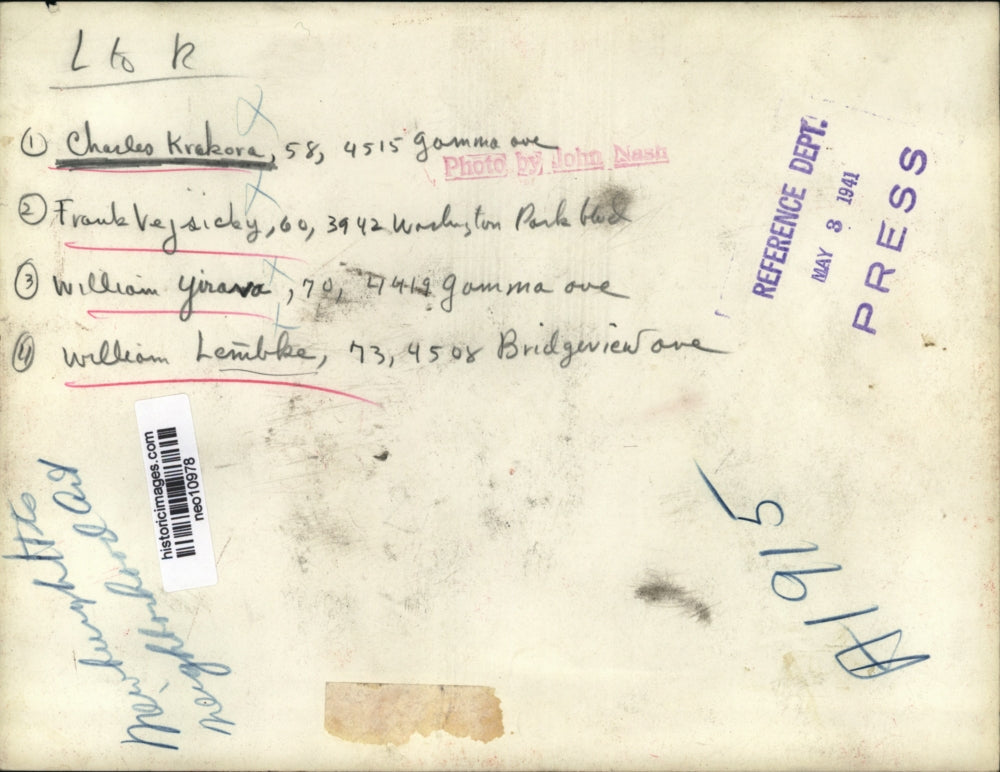 L to R
① Charles Krakora, 58, 4515 Gamma ave
Photo by John Nash
② Frank Vejsicky, 60, 3942 Washington Park blvd
③ William Jirava, 70, 4419 Gamma ave
④ William Lembke, 73, 4508 Bridgeview ave
REFERENCE DEPT.
MAY 8 1941
PRESS
historicimages.com
neo10978
Newburgh Hts
Neighborhood Aid
A1915